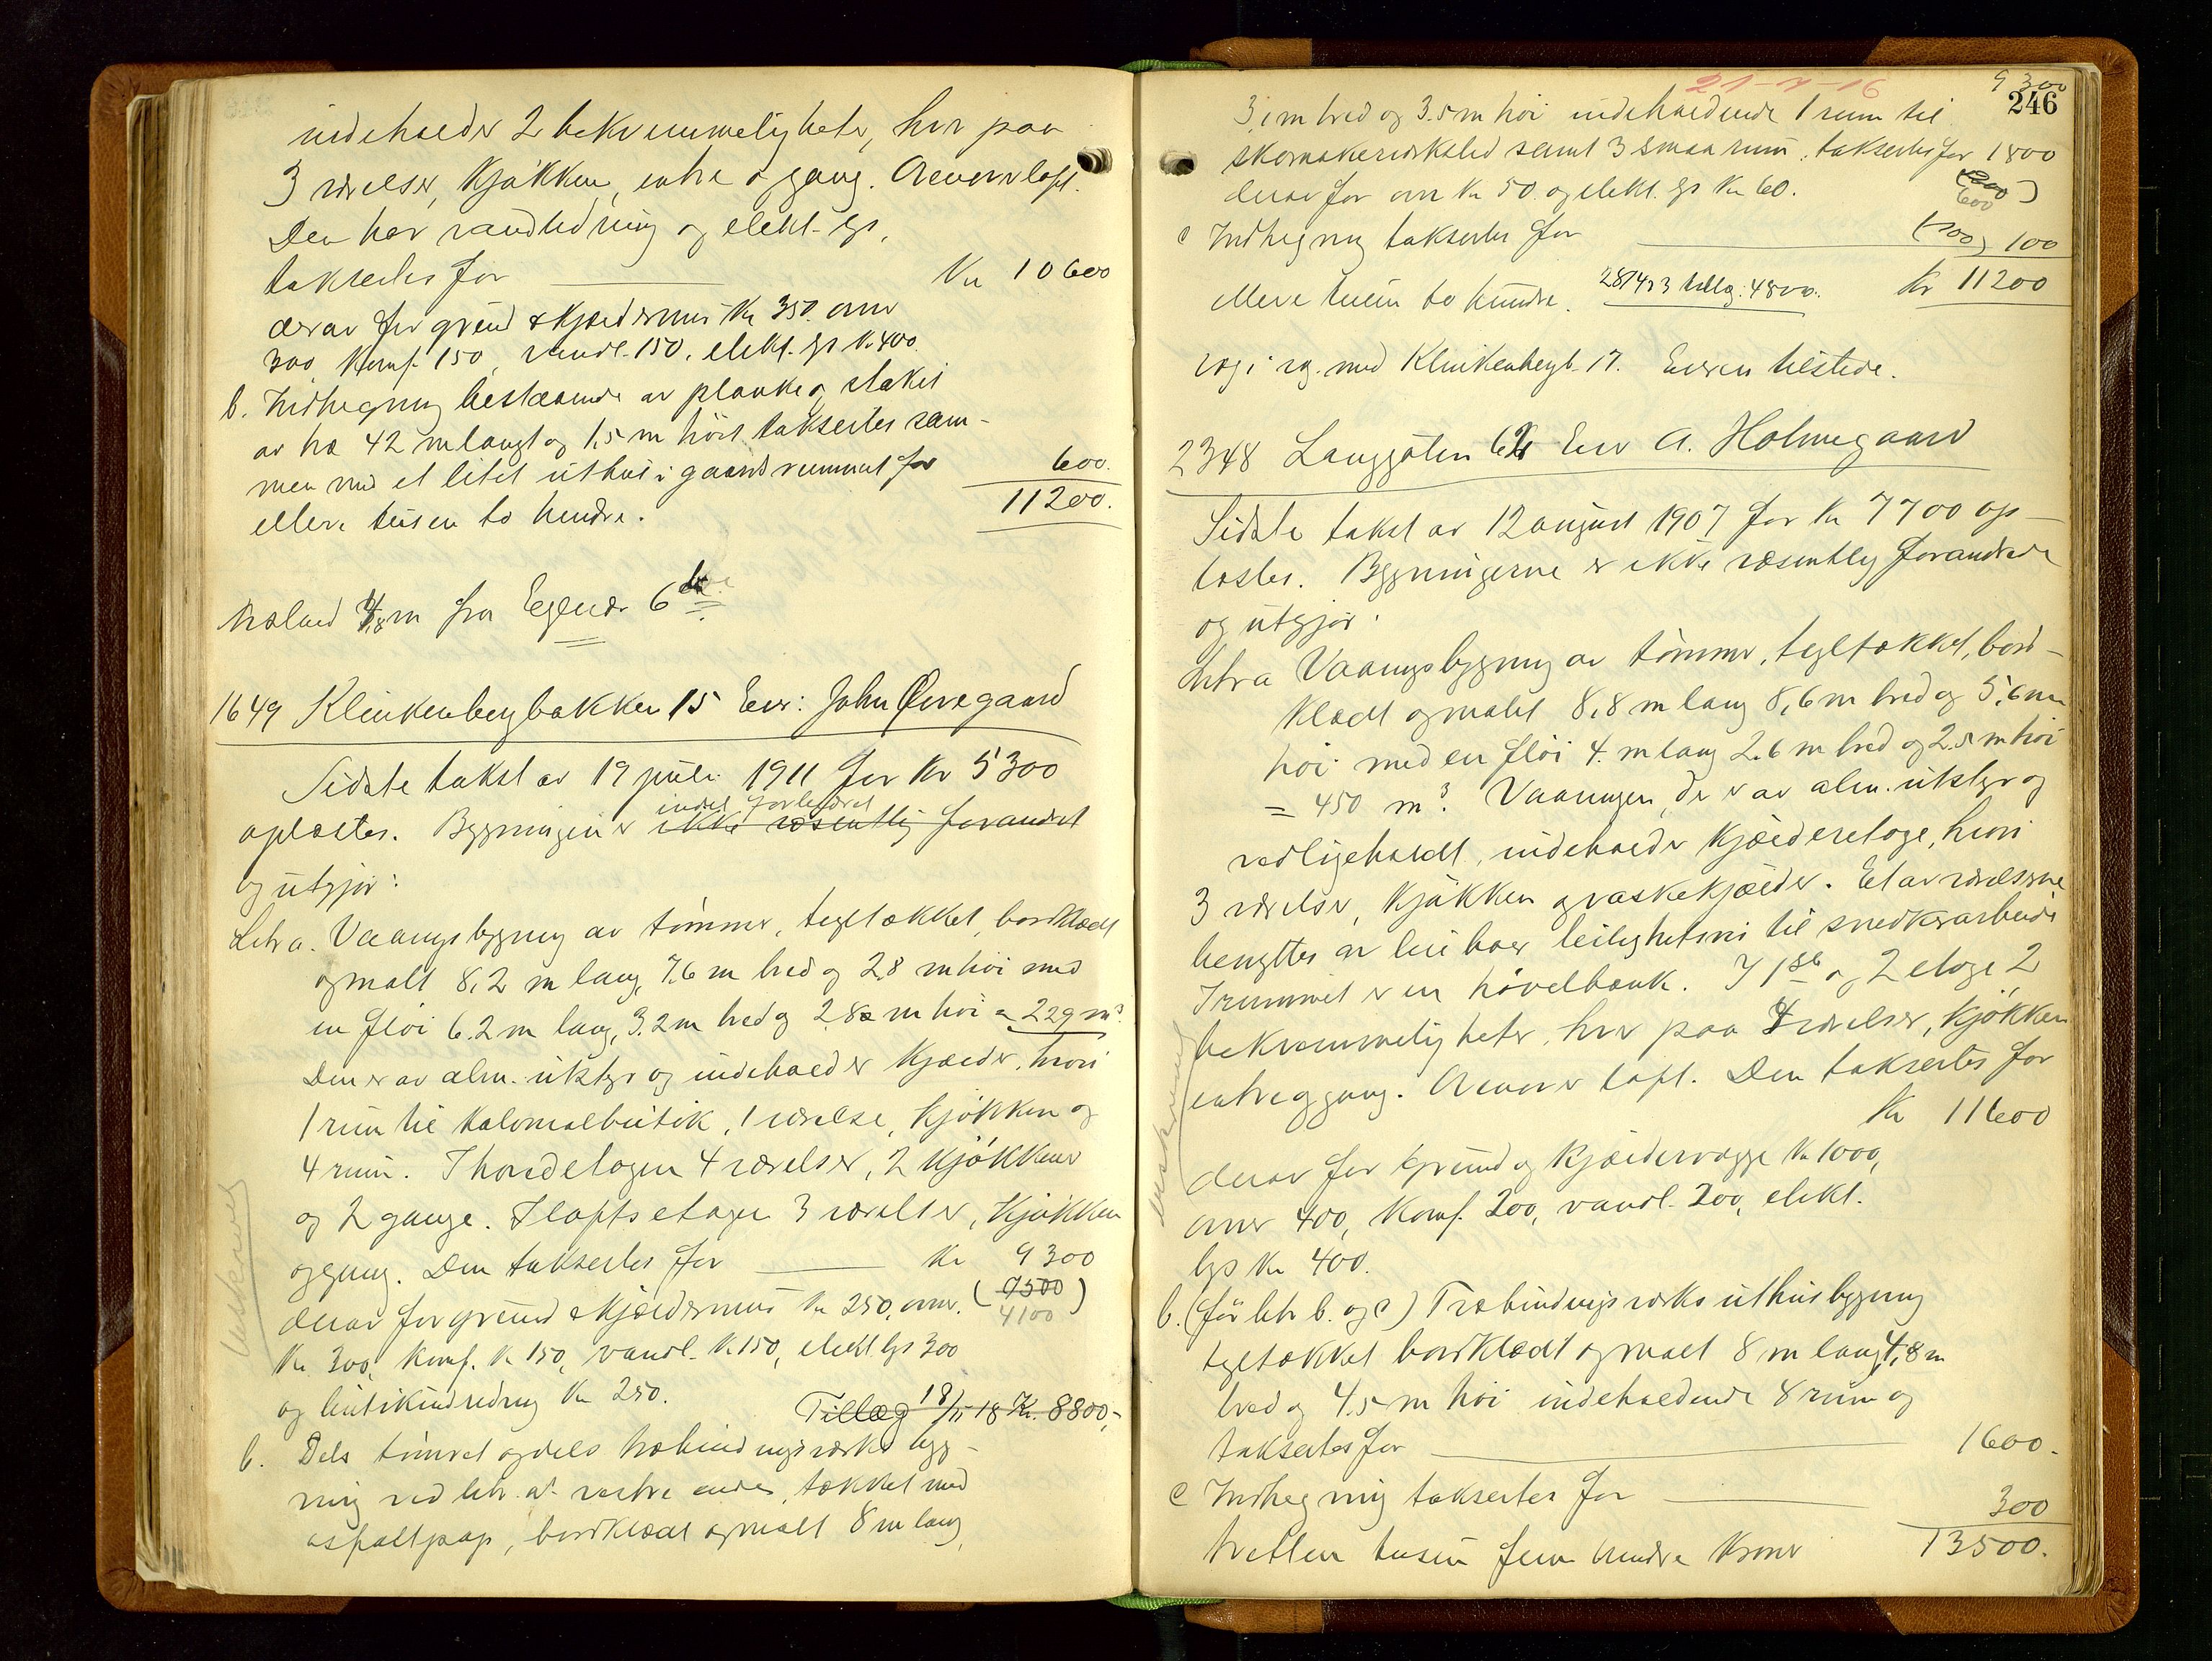 indeholder 2 bekvemmeligheter, hver paa
3 værelser, kjøkken, entre & gang. Ovenover loft.
Den har vandledning og elekt. lys,
taksertes for Kr 10600
derav for grund & kjeldermur Kr 350. ovner
300, Komf. 150, vandl. 150, elekt. lys Kr 400.
b. Indhegning bestaaende av planke og stakit
av træ 42 m langt og 1,5 m høit taksertes sam-
men med et litet uthus i gaardsrummet for 600.
elleve tusen to hundre. 11200.
4,8 m fra Eglund 6
1649 Klinkenbergbakken 15 Eier: John Øvregaard
Sidste takst av 19 juli 1911 for Kr 5300
oplæstes. Bygningen er ikke væsentlig forandret
indvl. forbedret
og utgjør:
Litr a. Vaaningsbygning av tømmer, tegltækket, bordklædt
og malt 8,2 m lang, 7,6 m bred og 2,8 m høi med
en fløi 6.2 m lang, 3,2 m bred og 2,8 m høi = 229 m³.
Den er av alm. utstyr og indeholder kjælder, hvori
1 rum til kolonialbutik, 1 værelse, kjøkken og
4 rum. I hovedetagen 4 værelser, 2 kjøkkener
og 2 gange. I loftsetagen 3 værelser, kjøkken
og gang. Den taksertes for Kr 9300
derav for grund & kjældermur Kr 250, ovner. (7500)
4100
Kr 300, komf. Kr 150, vandl. Kr 150, elekt lys 300
og butikindredning Kr 250.
Tillæg 18/11 18 Kr. 8800,-
b. Dels tømret og dels træbindingsverks byg-
ning ved litr. a's vestre ende, tækket med
asfaltpap, bordklædt og malt 8 m lang,
beskrevet
21-7-16
9300
246
3,1 m bred og 3.5 m høi indeholdende 1 rum til
skomakerverksted samt 3 smaa rum, taksertes for 1800
derav for ovn Kr 50. og elekt. lys Kr 60. (1200)
600
c Indhegning taksertes for (200) 100
elleve tusen to hundre. 28/4 23 tillæg: 4800. Kr 11200
vog i sg. med Klinkenbergb. 17. Eieren tilstede.
2348 Langgaten 62 Eier A. Holmegaard
Sidste takst av 12 august 1907 for Kr 7700 op-
læstes. Bygningerne er ikke væsentlig forandrede
og utgjør:
Litr a Vaaningsbygning av tømmer, tegltækket, bord-
klædt og malet 8,8 m lang 8,6 m bred og 5,6 m
høi med en fløi 4. m lang 2.6 m bred og 2.5 m høi
= 450 m³. Vaaningen, der er av alm. utstyr og
vedligeholdt, indeholder kjælderetage, hvori
3 værelser, kjøkken og vaskekjælder. Et av værelserne
benyttes av leieboer leilighetsvis til snedkerarbeide
I rummet er en høvelbænk. I 1ste og 2 etage 2
bekvemmeligheter, hver paa 4 værelser, kjøkken
entre og gang. Ovenover loft. Den taksertes for
Kr 11600
derav for grund og kjældervægge Kr 1000,
ovner 400, Komf. 200, vandl. 200, elekt.
lys Kr 400.
b. (før litr b. og c) Træbindingsverks uthusbygning
tegltækket bordklædt og malt 8 m lang, 4,8 m
bred og 4.5 m høi indeholdende 8 rum og
taksertes for 1600.
c Indhegning taksertes for 300
tretten tusen fem hundre Kroner 13500.
beskrevet